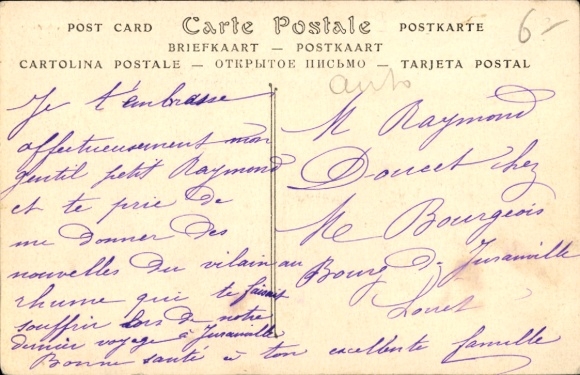 POST CARD Carte Postale POSTKARTE
BRIEFKAART — POSTKAART
CARTOLINA POSTALE — ОТКРЫТОЕ ПИСЬМО — TARJETA POSTAL
6-
auto
Je t'embrasse
affectueusement mon
gentil petit Raymond
et te prie de
me donner des
nouvelles du vilain
rhume qui te faisait
souffrir lors de notre
dernier voyage à Juranville
Bonne santé à ton excellente famille
M Raymond
Doucet chez
Me Bourgeois
au Bourg de Juranville
Loiret